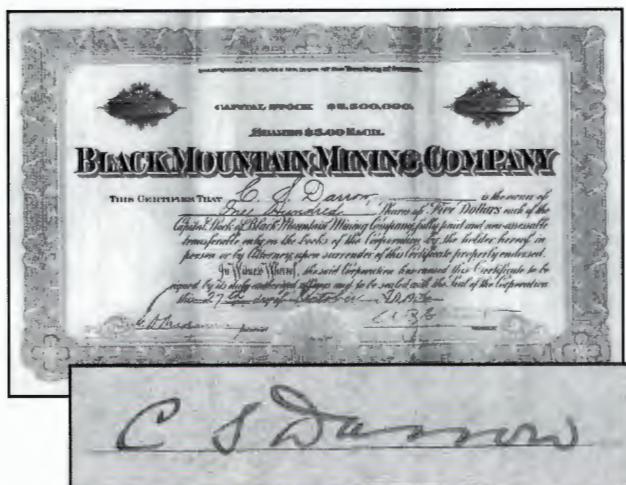 INCORPORATED UNDER THE LAWS OF THE Territory of Arizona.
CAPITAL STOCK
SHARES $5.00 EACH.
BLACK MOUNTAIN MINING COMPANY
THIS CERTIFIES THAT C. S. Darrow is the owner of
One Hundred Shares of Five Dollars each of the
Capital Stock of Black Mountain Mining Company, fully paid and non-assessable
transferable only on the books of the Corporation by the holder hereof in
person or by Attorney, upon surrender of this Certificate properly endorsed.
In Witness Whereof, the said Corporation has caused this Certificate to be
signed by its duly authorized officers and to be sealed with the Seal of the Corporation
this 27th day of October A.D. 190
C S Darrow